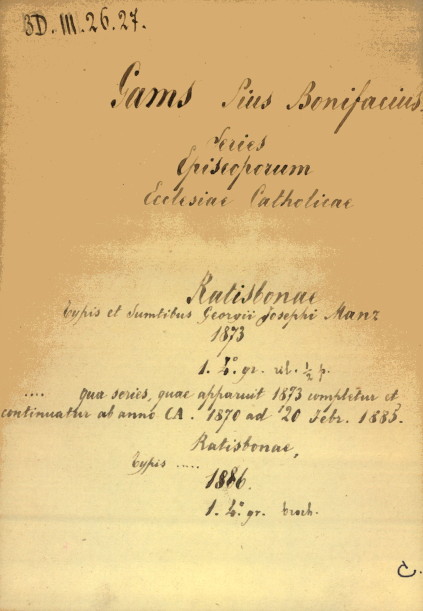 BD. III. 26. 27.
Gams Pius Bonifacius.
Series
Episcoporum
Ecclesiae Catholicae
Ratisbonae
typis et Sumtibus Georgii Josephi Manz
1873
1. 4° gr. ½
.... qua series, quae apparuit 1873 completur et
continuatur ab anno CA. 1870 ad 20 Febr. 1885.
Ratisbonae,
typis .....
1886.
1. 4° gr. broch.
C.